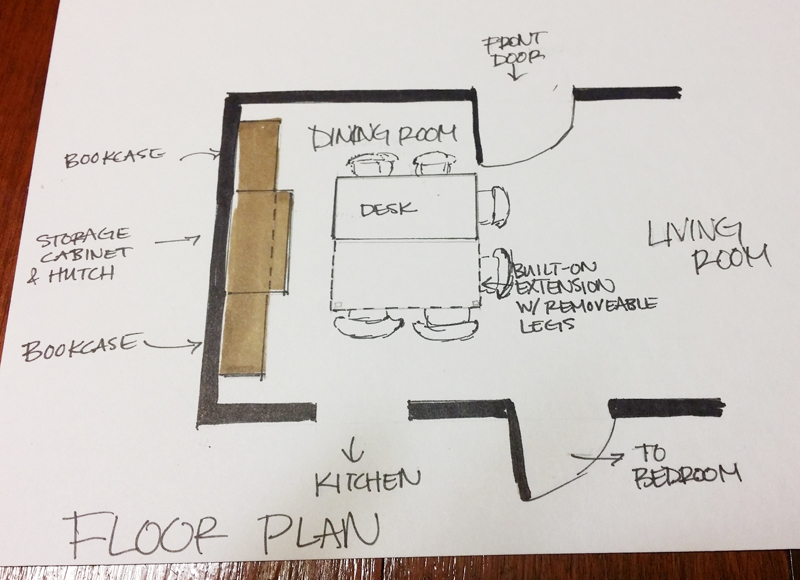 FRONT
DOOR
DINING ROOM
BOOKCASE
DESK
STORAGE
CABINET
& HUTCH
LIVING
ROOM
BUILT-ON
EXTENSION
W/ REMOVEABLE
LEGS
BOOKCASE
KITCHEN
TO
BEDROOM
FLOOR PLAN